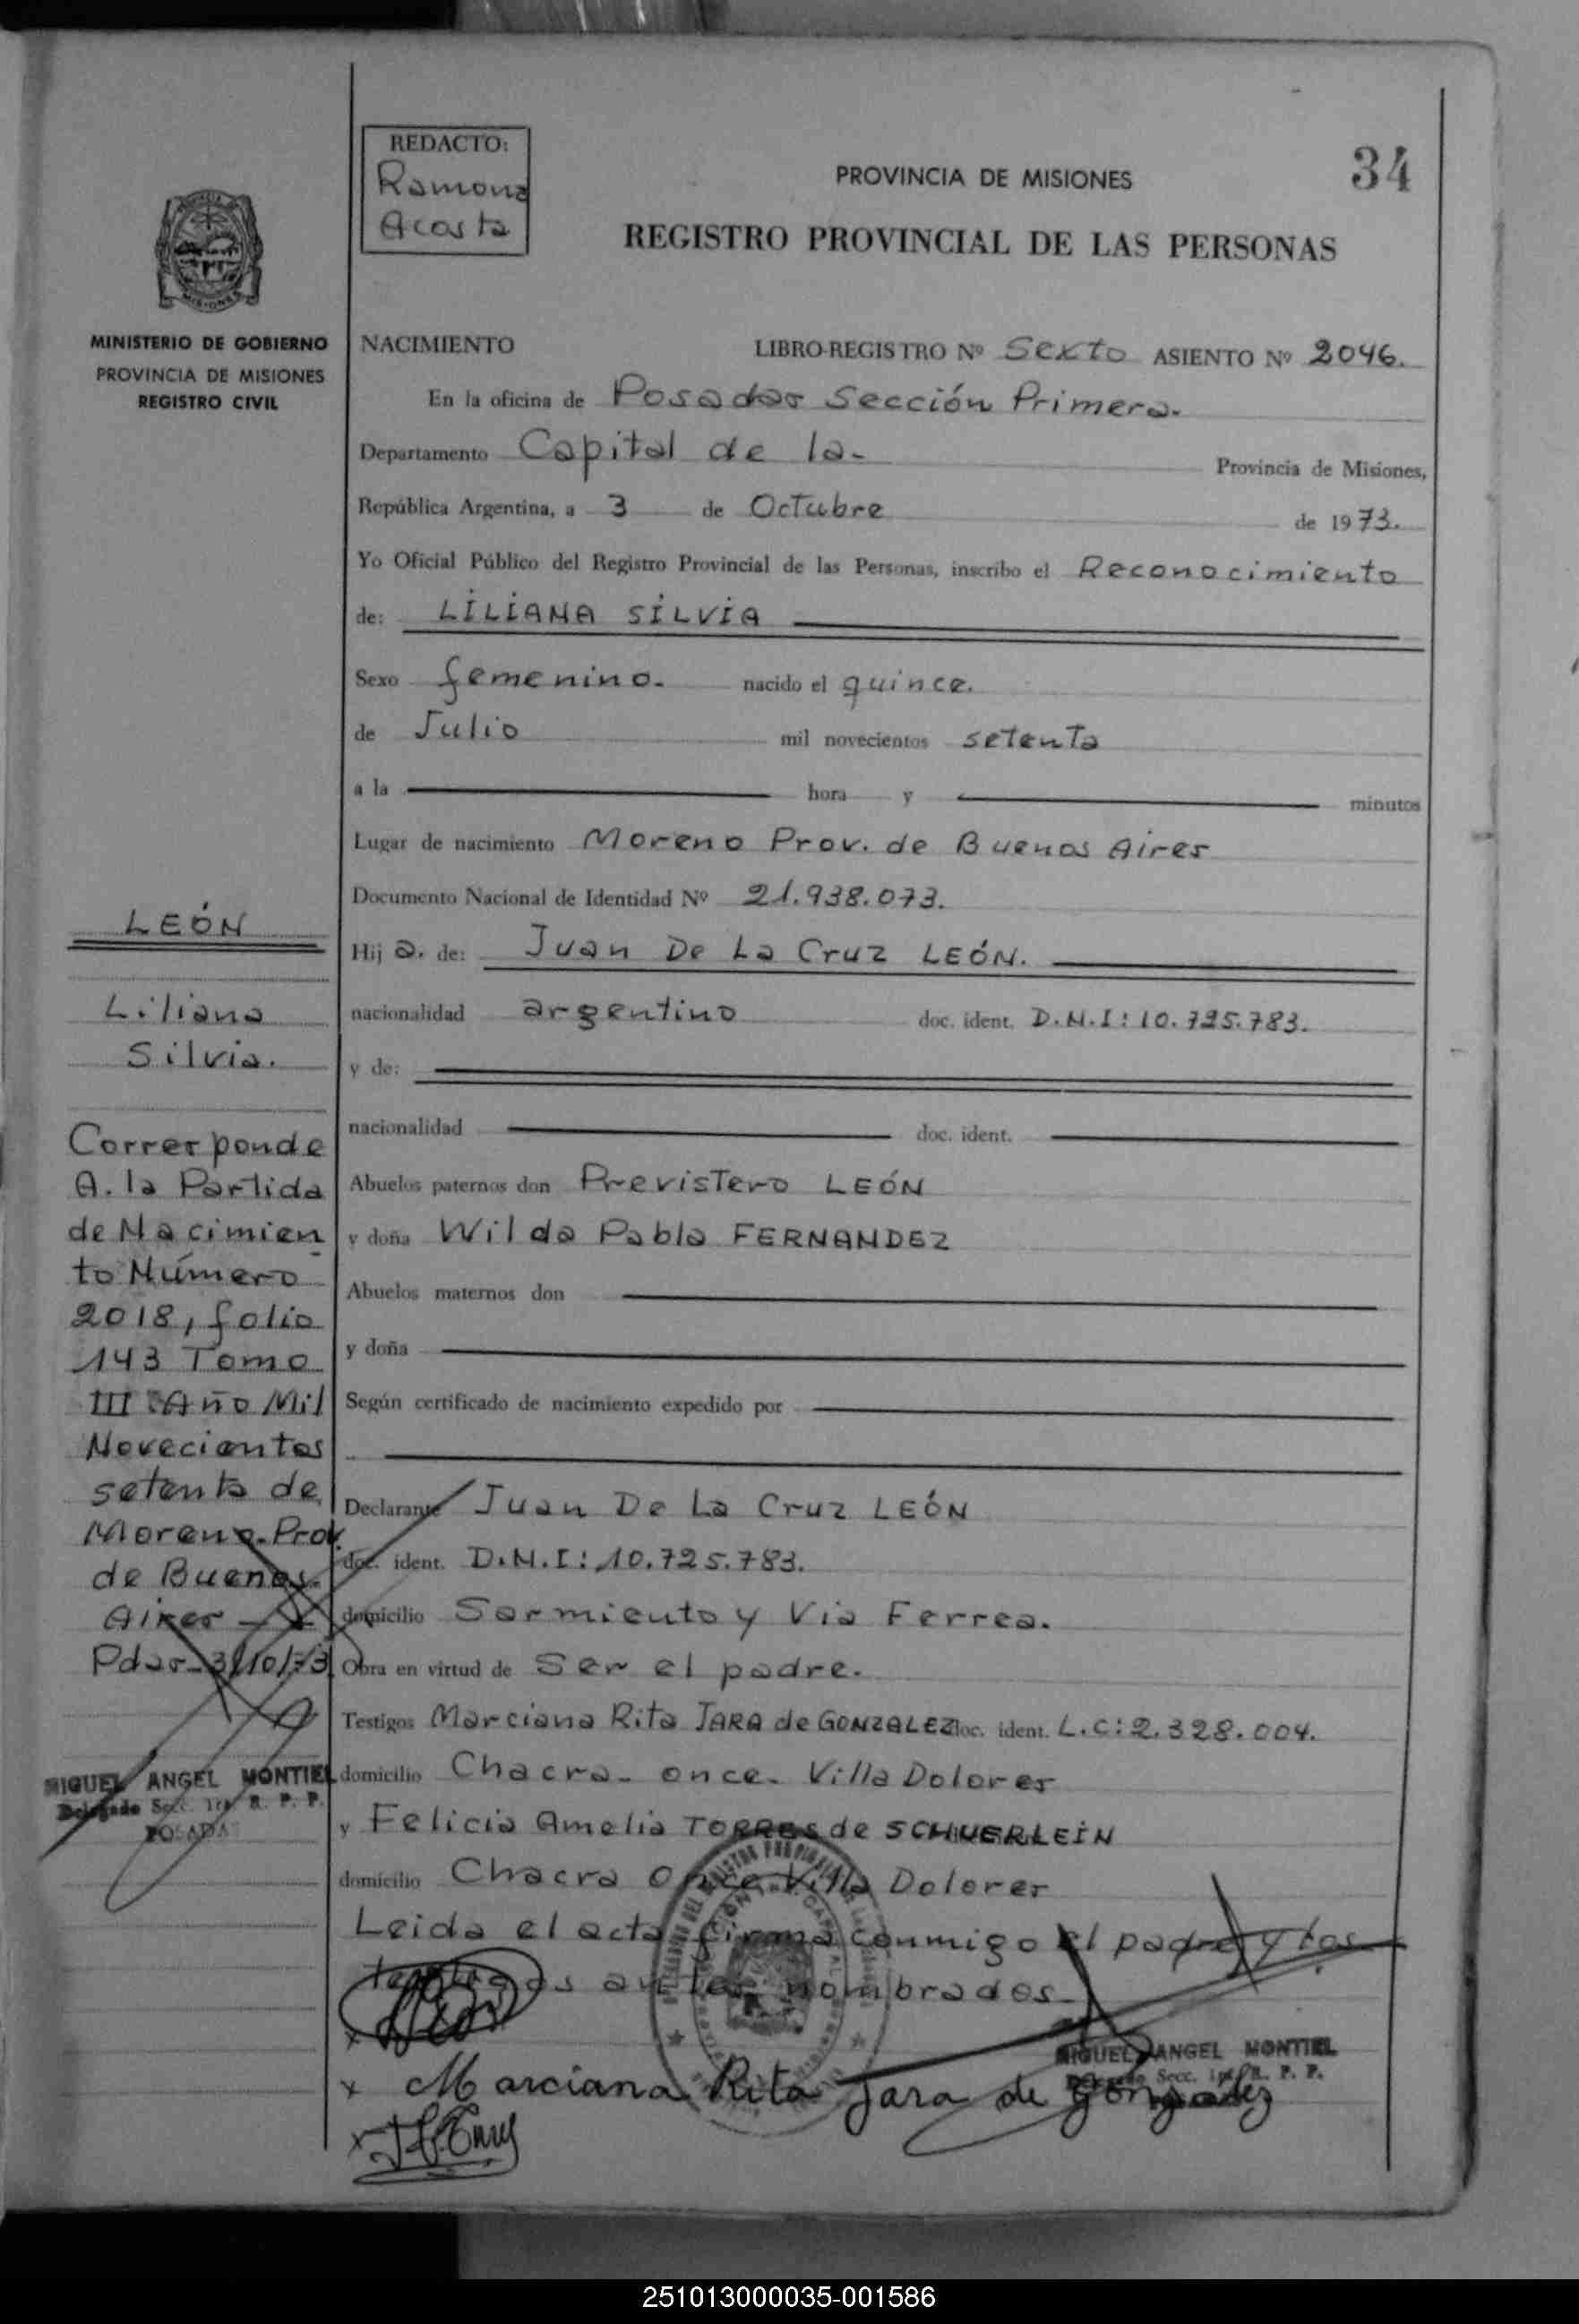 REDACTO:
Ramona
Acosta
PROVINCIA DE MISIONES
34
REGISTRO PROVINCIAL DE LAS PERSONAS
MISIONES
MINISTERIO DE GOBIERNO
PROVINCIA DE MISIONES
REGISTRO CIVIL
NACIMIENTO LIBRO-REGISTRO Nº Sexto ASIENTO Nº 2046.
En la oficina de Posadas Sección Primera.
Departamento Capital de la- Provincia de Misiones,
República Argentina, a 3 de Octubre de 1973.
Yo Oficial Público del Registro Provincial de las Personas, inscribo el Reconocimiento
de: LILIANA SILVIA
Sexo femenino. nacido el quince.
de Julio mil novecientos setenta
a la hora y minutos
Lugar de nacimiento Moreno Prov. de Buenos Aires
Documento Nacional de Identidad Nº 21.938.073.
Hij a. de: Juan De La Cruz LEÓN.
nacionalidad argentino doc. ident. D.N.I: 10.725.783.
y de:
nacionalidad doc. ident.
Abuelos paternos don Previstero LEÓN
y doña Wilda Pabla FERNANDEZ
Abuelos maternos don
y doña
Según certificado de nacimiento expedido por
Declarante Juan De La Cruz LEÓN
doc. ident. D.N.I: 10.725.783.
domicilio Sarmiento y Via Ferrea.
Obra en virtud de Ser el padre.
Testigos Marciana Rita JARA de GONZALEZ doc. ident. L.C: 2.328.004.
domicilio Chacra- once- Villa Dolores
y Felicia Amelia TORRES de SCHUERLEIN
domicilio Chacra Once Villa Dolores
Leida el acta firma conmigo el padre y los
testigos antes nombrados-
LEÓN
Liliana
Silvia.
Corresponde
A. la Partida
de Nacimien
to Número
2018, folio
143 Tomo
III Año Mil
Novecientos
setenta de
Moreno-Prov.
de Buenos-
Aires-
Pdas-3/10/73
MIGUEL ANGEL MONTIEL
Delegado Secc. 1ra R. P. P.
POSADAS
MIGUEL ANGEL MONTIEL
Delegado Secc. 1ra R. P. P.
x Marciana Rita Jara de Gonzalez
251013000035-001586